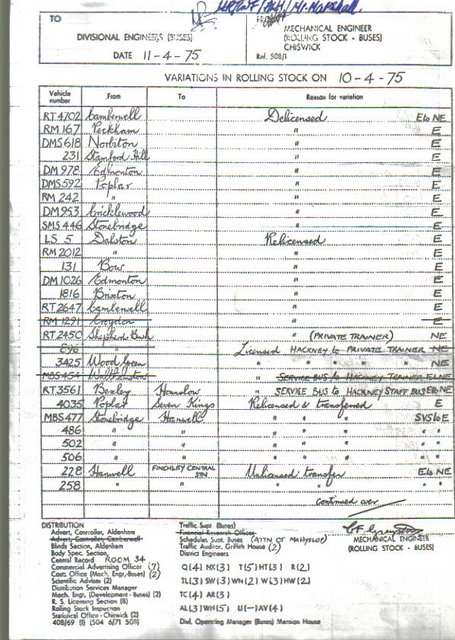 HR/WF/BH/Mr Marshall
TO FROM
DIVISIONAL ENGINEERS (BUSES) MECHANICAL ENGINEER
(ROLLING STOCK - BUSES)
CHISWICK
DATE 11-4-75 Ref. 508/1
VARIATIONS IN ROLLING STOCK ON 10-4-75
Vehicle number From To Reason for variation
RT4702 Camberwell Delicensed E to NE
RM 167 Peckham " E
DMS 618 Norbiton " E
231 Stamford Hill " E
DM 978 Edmonton " E
DMS 592 Poplar " E
RM 242 " " E
DM 953 Cricklewood " E
SMS 446 Stonebridge " E
LS 5 Dalston Relicensed E
RM 2012 " " E
131 Bow " E
DM 1026 Edmonton " E
1816 Brixton " E
RT 2647 Camberwell " E
RM 1291 Croydon " E
RT 2450 Shepherds Bush " (PRIVATE TRAINER) NE
896 Licensed HACKNEY to PRIVATE TRAINER NE
3425 Wood Green " " " " NE
MBS 454 Walthamstow " SERVICE BUS to HACKNEY TRAINER E to NE
RT3561 Bexley Hounslow " SERVICE BUS to HACKNEY STAFF BUS E to NE
4035 Poplar Seven Kings Relicensed & transferred E
MBS 477 Stonebridge Hanwell " " " SVS to E
486 " " " " " " "
502 " " " " " " "
506 " " " " " " "
228 Hanwell FINCHLEY CENTRAL STN Unlicensed transfer E to NE
258 " " " " " "
continued over
DISTRIBUTION
Advert. Controller, Aldenham
Advert. Controller, Camberwell
Blinds Section, Aldenham
Body Spec. Section
Central Record ROOM 34
Commercial Advertising Officer (7)
Costs Office (Mech. Engr. Buses) (2)
Scientific Adviser (2)
Distribution Services Manager
Mech. Engr. (Development - Buses) (2)
R. S. Licensing Section (8)
Rolling Stock Inspection
Statistical Office - Chiswick (2)
408/69 (1) (504 6/71 508)
Traffic Supt (Buses)
Financial Research Officer
Schedules Supt. (Buses) (ATTN OF MR HYSLOP)
Traffic Auditor, Griffith House (2)
District Engineers
Q(4) NX(3) T(5) HT(3) R(2)
TL(3) SW(3) WN(2) W(3) HW(2)
TC(4) AR(3)
AL(3) WH(5) U(-) AV(4)
Divl. Operating Manager (Buses) Mansion House
MECHANICAL ENGINEER
(ROLLING STOCK - BUSES)